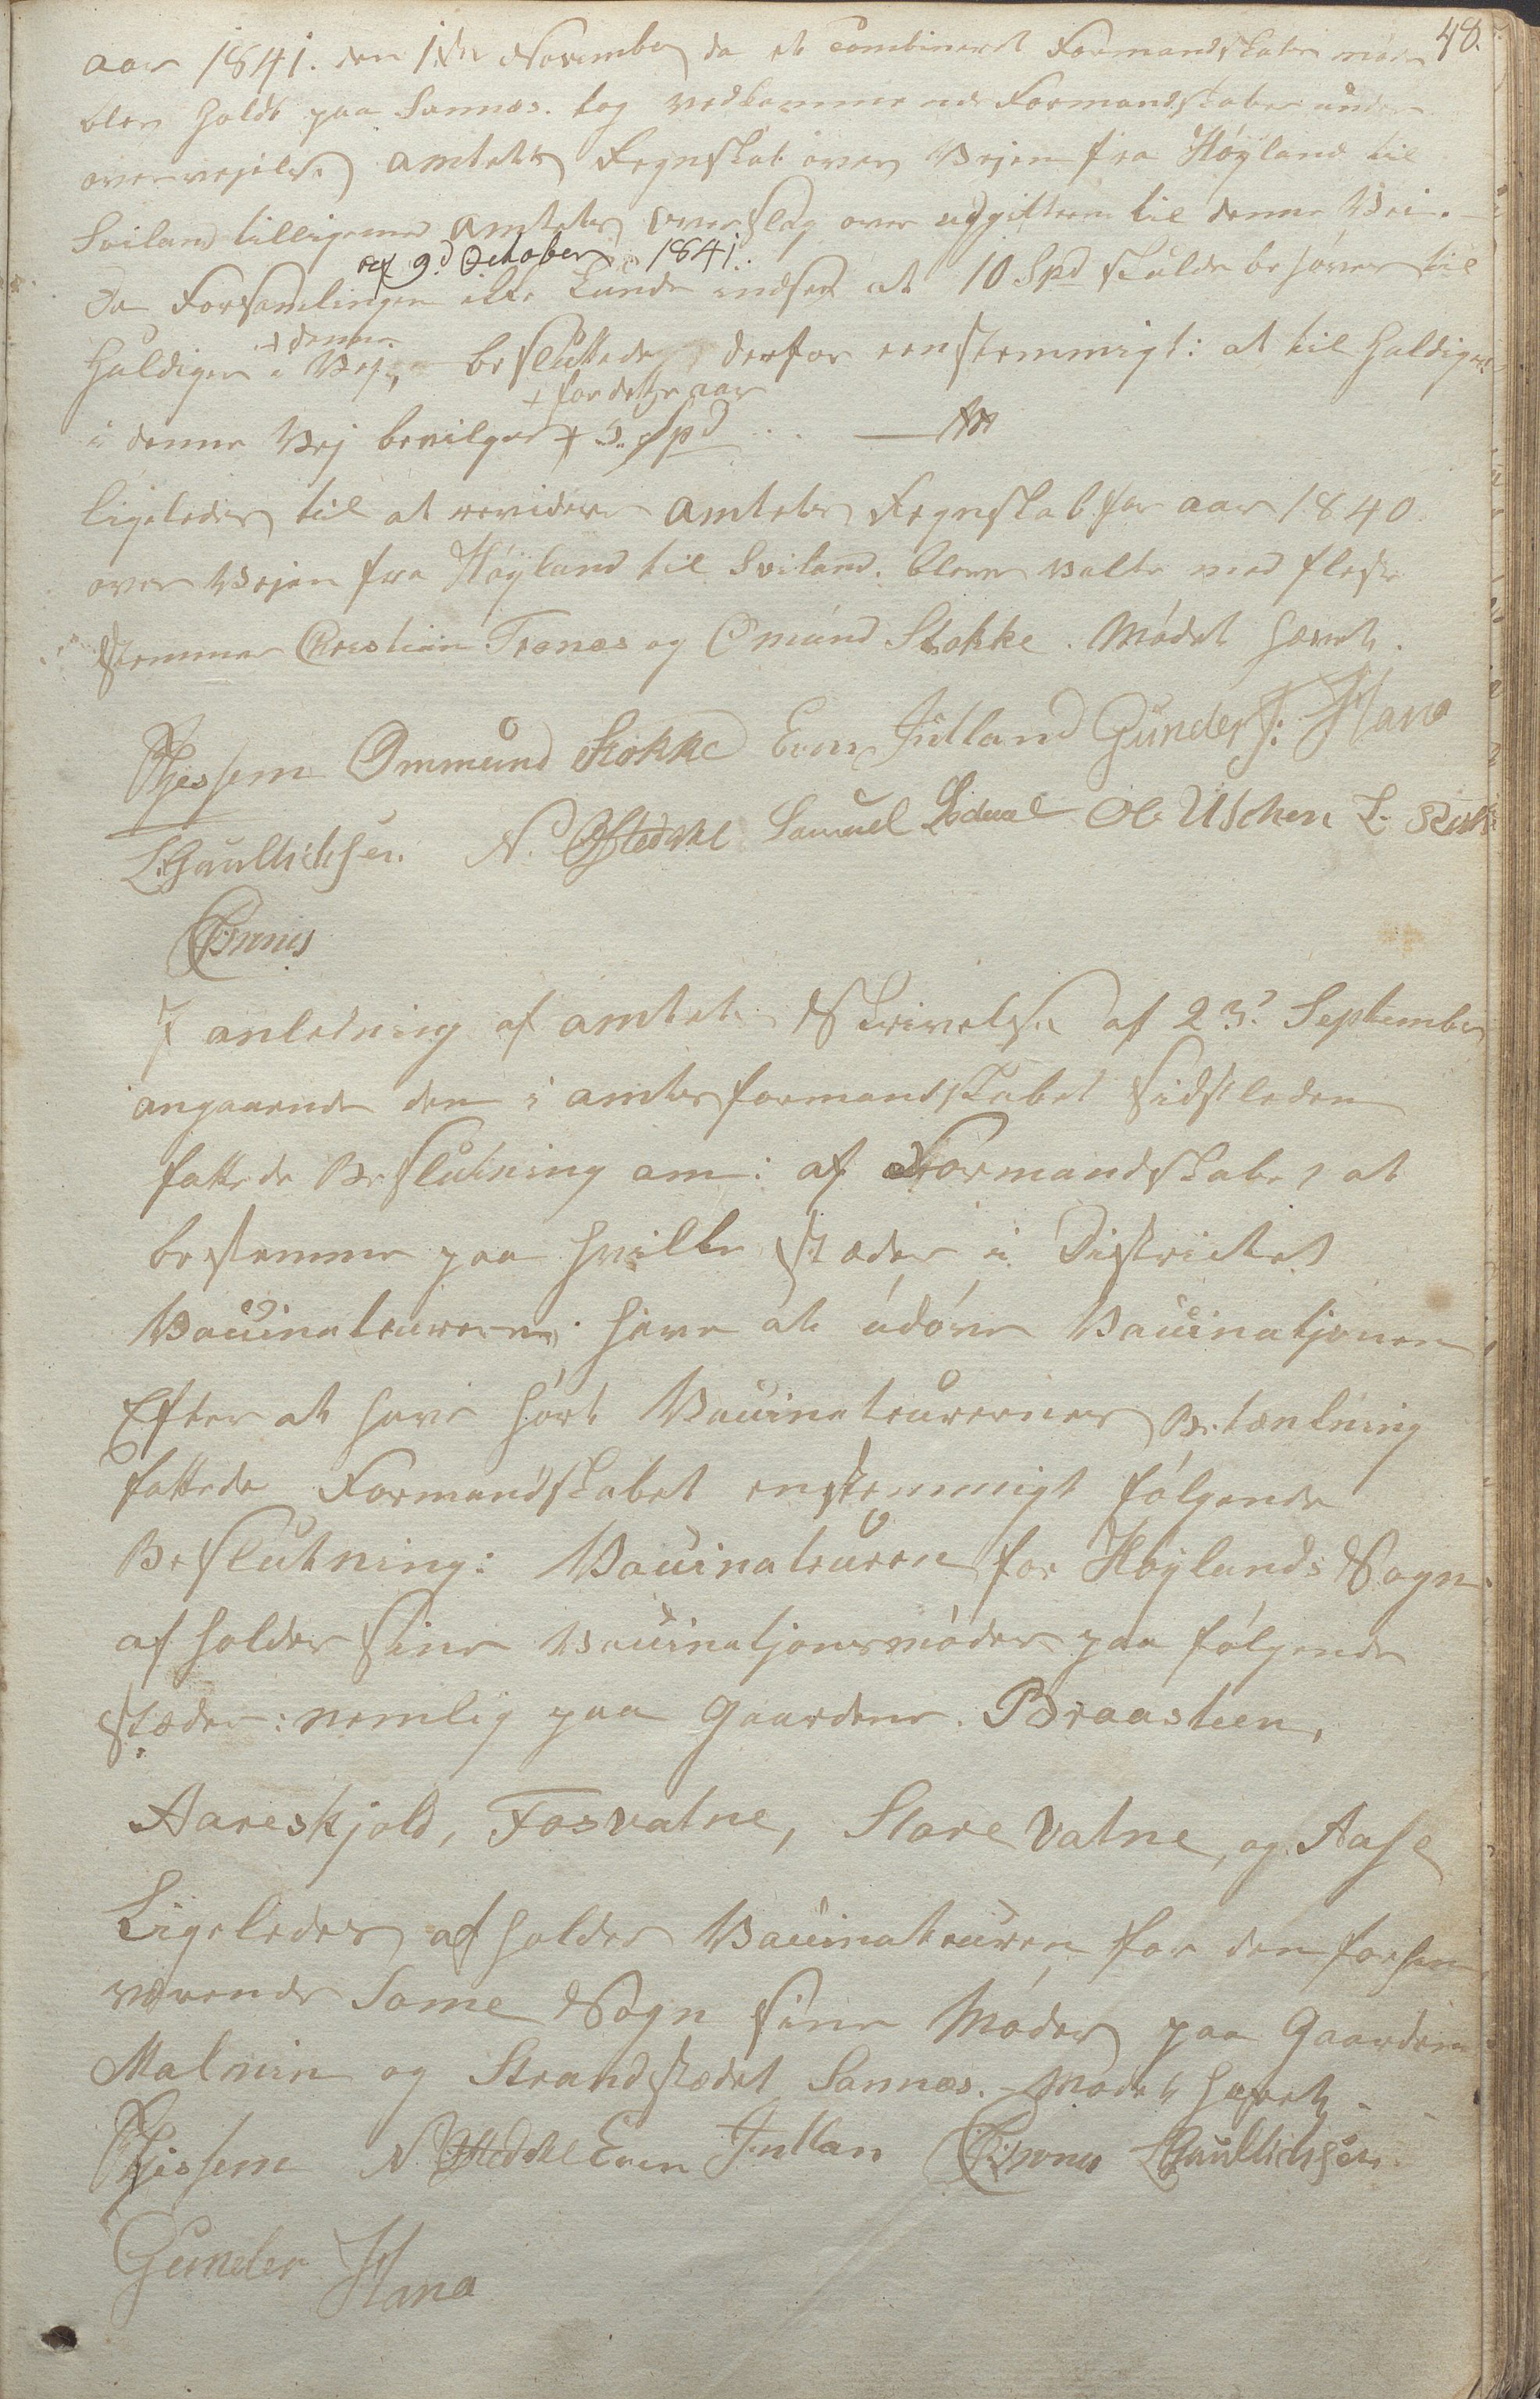 48.
Aar 1841. den 1ste November da et Combineret Formandskabs møde
blev holdt paa Sannæs. tog vedkommende Formandskaber under
overveielse Amtets Regnskab over Vejen fra Høyland til
Sviland tilligemed Amtets overslag over udgifterne til denne Vei.
af 9d October 1841.
Da Forsamlingen ikke kunde indsee at 10 Spd skulde behøves til
+ denne
Huldigen i Vej, besluttedes derfor eenstemmigt: at til Huldiger
+ for dette aar
i denne Vej bevilges + 5. Spd
ligeledes til at revidere Amtets Regnskab for aar 1840
over Vejen fra Høyland til Sviland. bleve valte med fleste
stemmer Christian Tronæs og Omund Stokke. Mødet hævet.
Ommund Stokke Even Jutland Gunder J: Hana
L. Gaultichsen. N. Ofstedahl Samuel Lodael Ole Uschen L.
I anledning af Amtets Skrivelse af 23d September
angaaende den i amtsformandskabet sidstleden
fattede Beslutning om: af Formandskabet at
bestemme paa hvilke stæder i Districtet
Vaccinateurerne have at udøve Vaccinationen
Efter at have hørt Vaccinateurernes Betænkning
fattede Formandskabet enstemmigt følgende
Beslutning: Vaccinateuren for Høylands Sogn
afholder sine Vaccinationsmøder paa følgende
stæder: nemlig paa Gaardene. Braasteen,
Aareskjold, Fosvatne, Store Vatne, og Aase
Ligeledes afholder Vaccinateuren for den forhen
værende Some Sogn sine Møder paa Gaarden
Malmin og Strandstædet Sannæs. Mødet hævet.
N. Ofstedahl Even Jutlan L Gaultichsen.
Gunder Hana